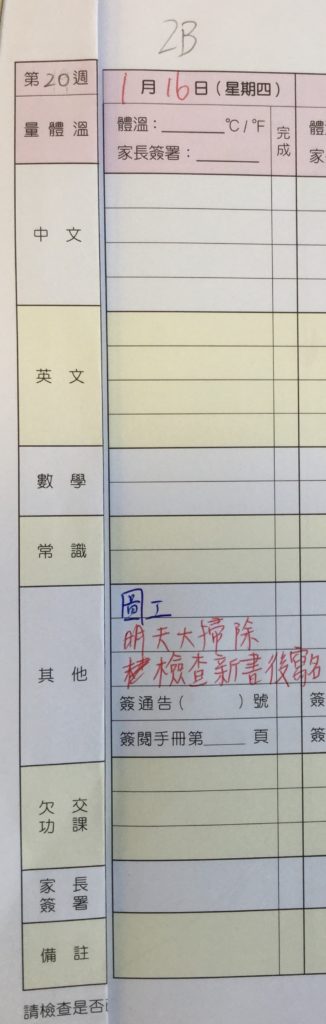 2B
第20週
1月16日(星期四)
量體溫
體溫：______℃/℉
家長簽署：______
完成
體
家
中文
英文
數學
常識
其他
圖工
明天大掃除
檢查新書後寫名
簽通告( )號
簽
簽閱手冊第____頁
簽
欠交功課
家長簽署
備註
請檢查是否